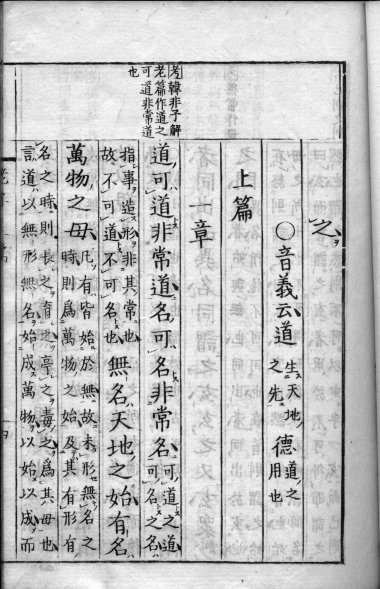 考韓非子解
老篇作道之
可道非常道
也
之
〇音義云道生天地之先德道之用也
上篇
一章
道可道非常道名可名非常名可道之道可名之名
指事造形非其常也故不可道不可名也無名天地之始有名
萬物之母凡有皆始於無故未形無名之時則爲萬物之始及其有形有
名之時則長之育之亭之毒之爲其母也
言道以無形無名始成萬物以始以成而